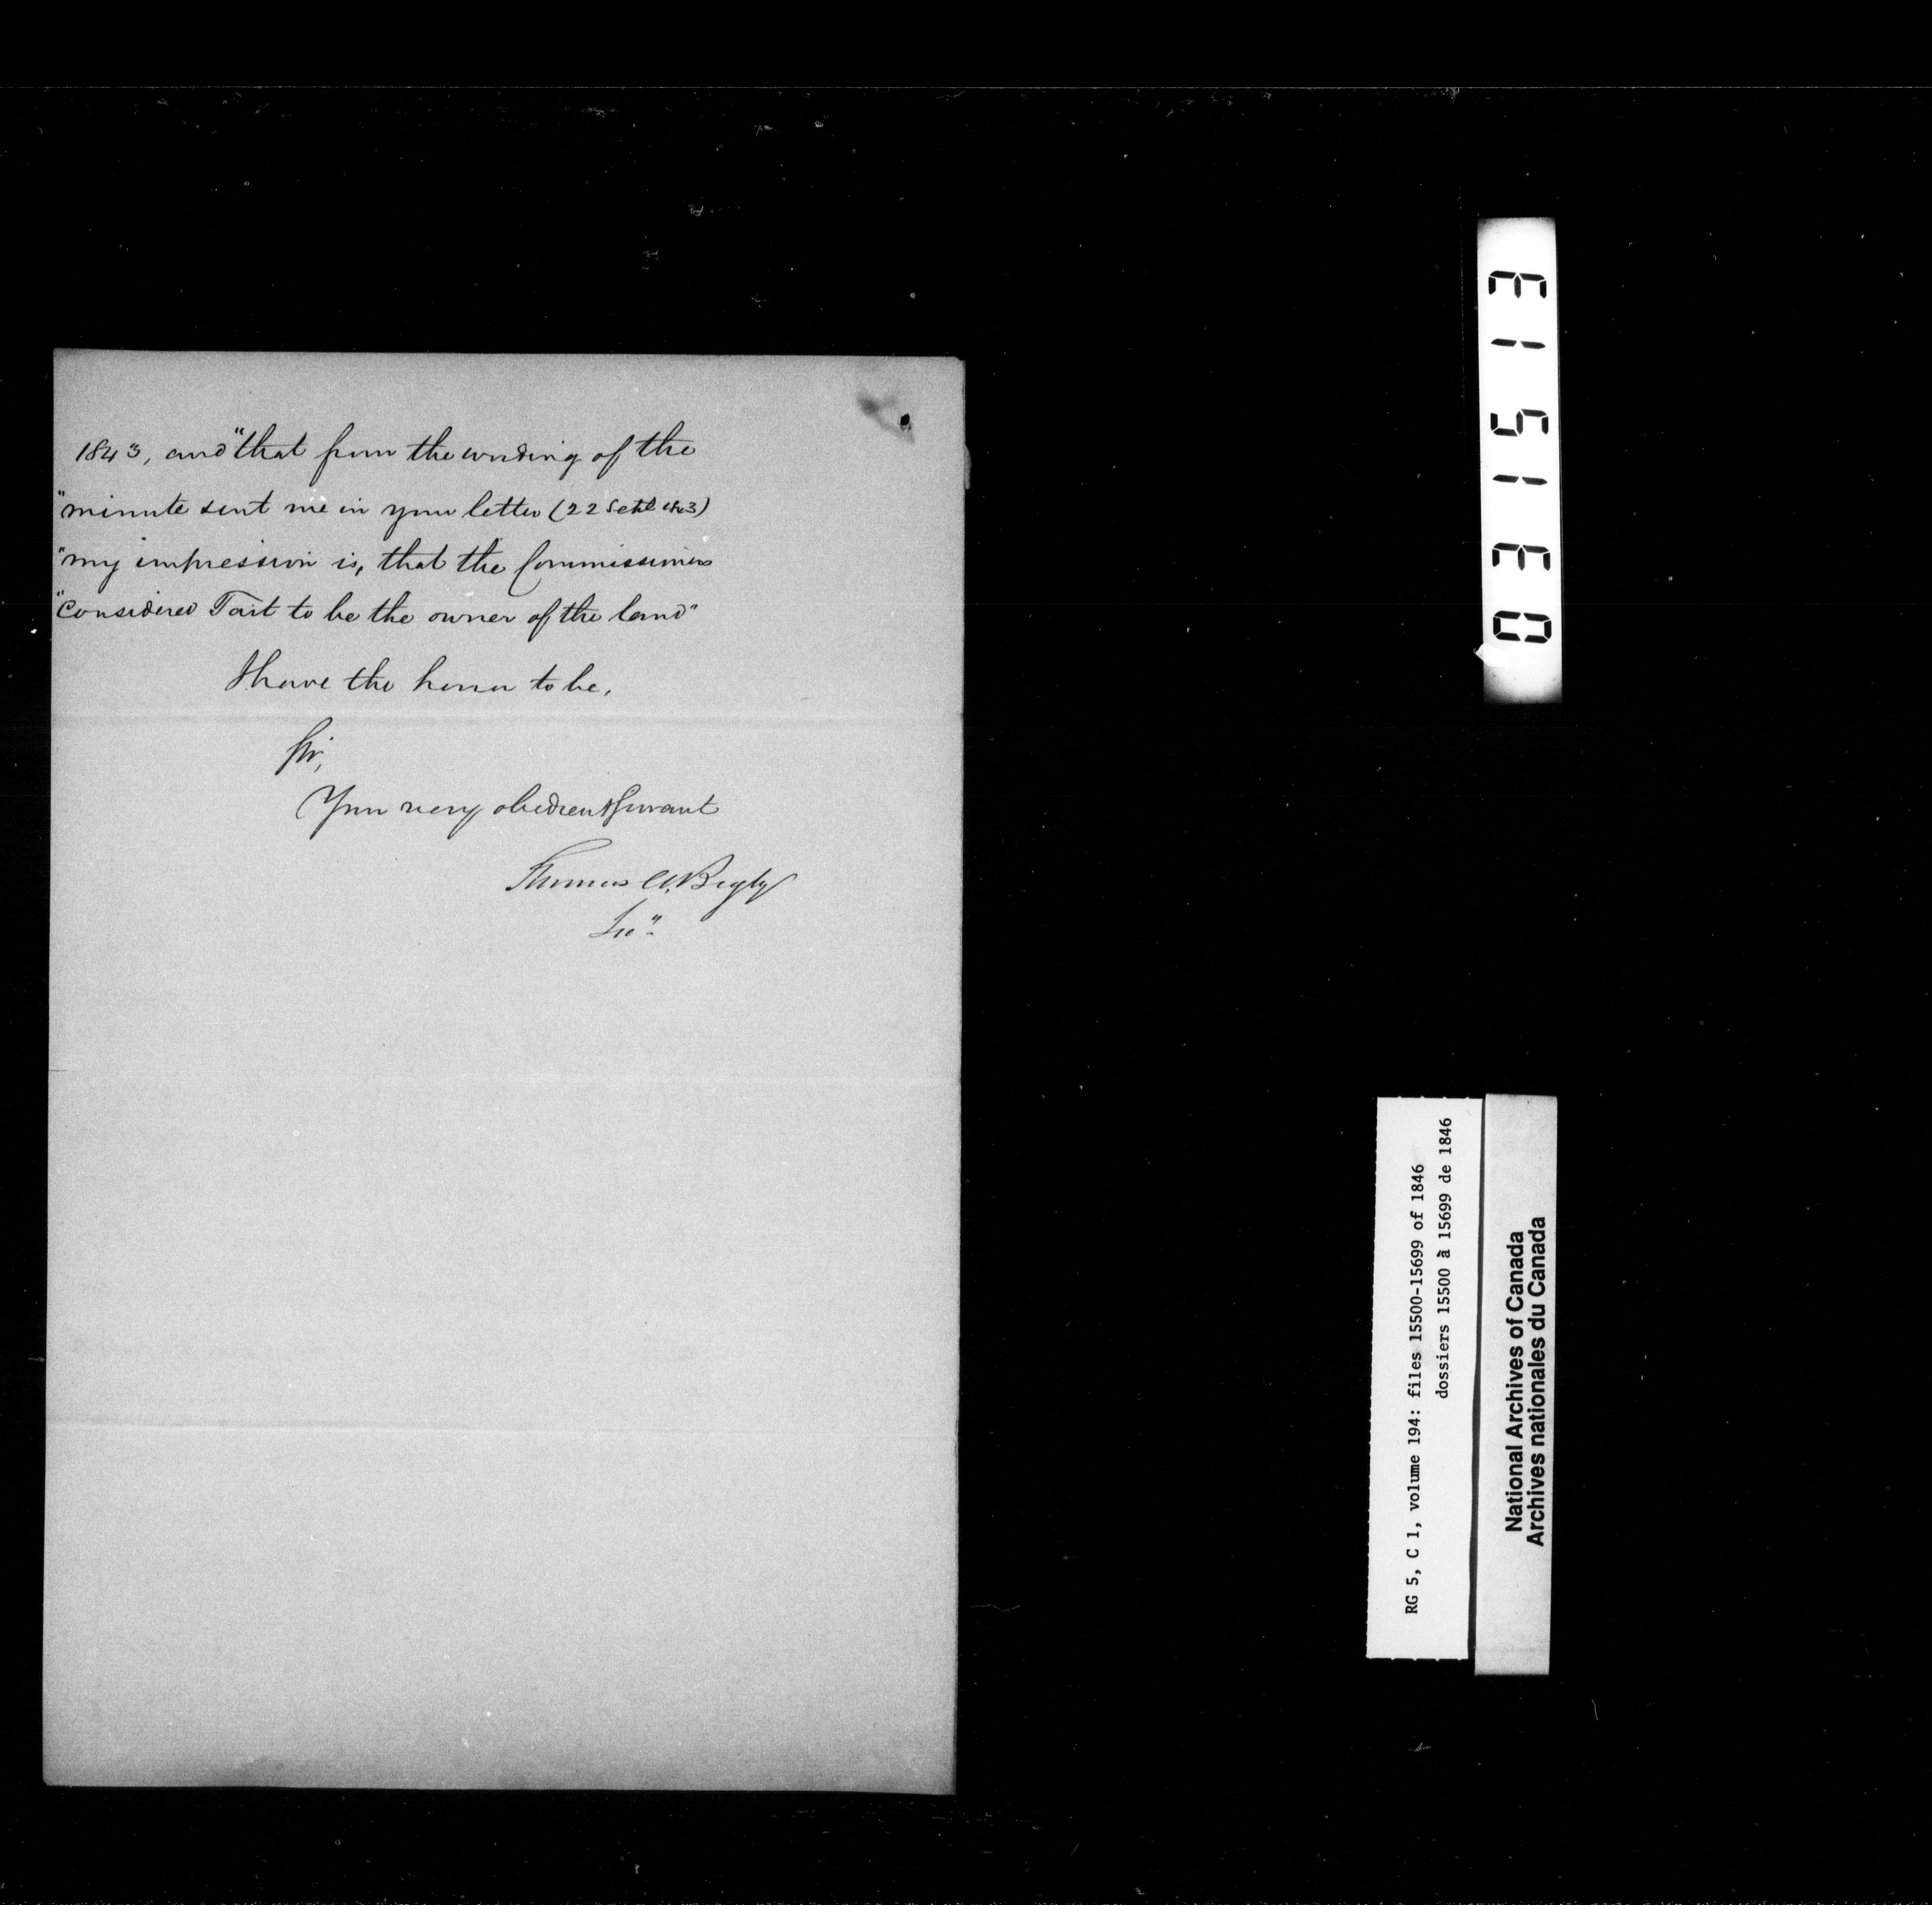 1843, and "that from the wording of the
"minute sent me in your letter (22 Sept 1843)
"my impression is, that the Commissioners
"Considered Tait to be the owner of the land"
I have the honor to be,
Sir,
Your very obedient Servant
Thomas A. Begly
Secy
031513
RG 5, C 1, volume 194: files 15500-15699 of 1846
dossiers 15500 à 15699 de 1846
National Archives of Canada
Archives nationales du Canada